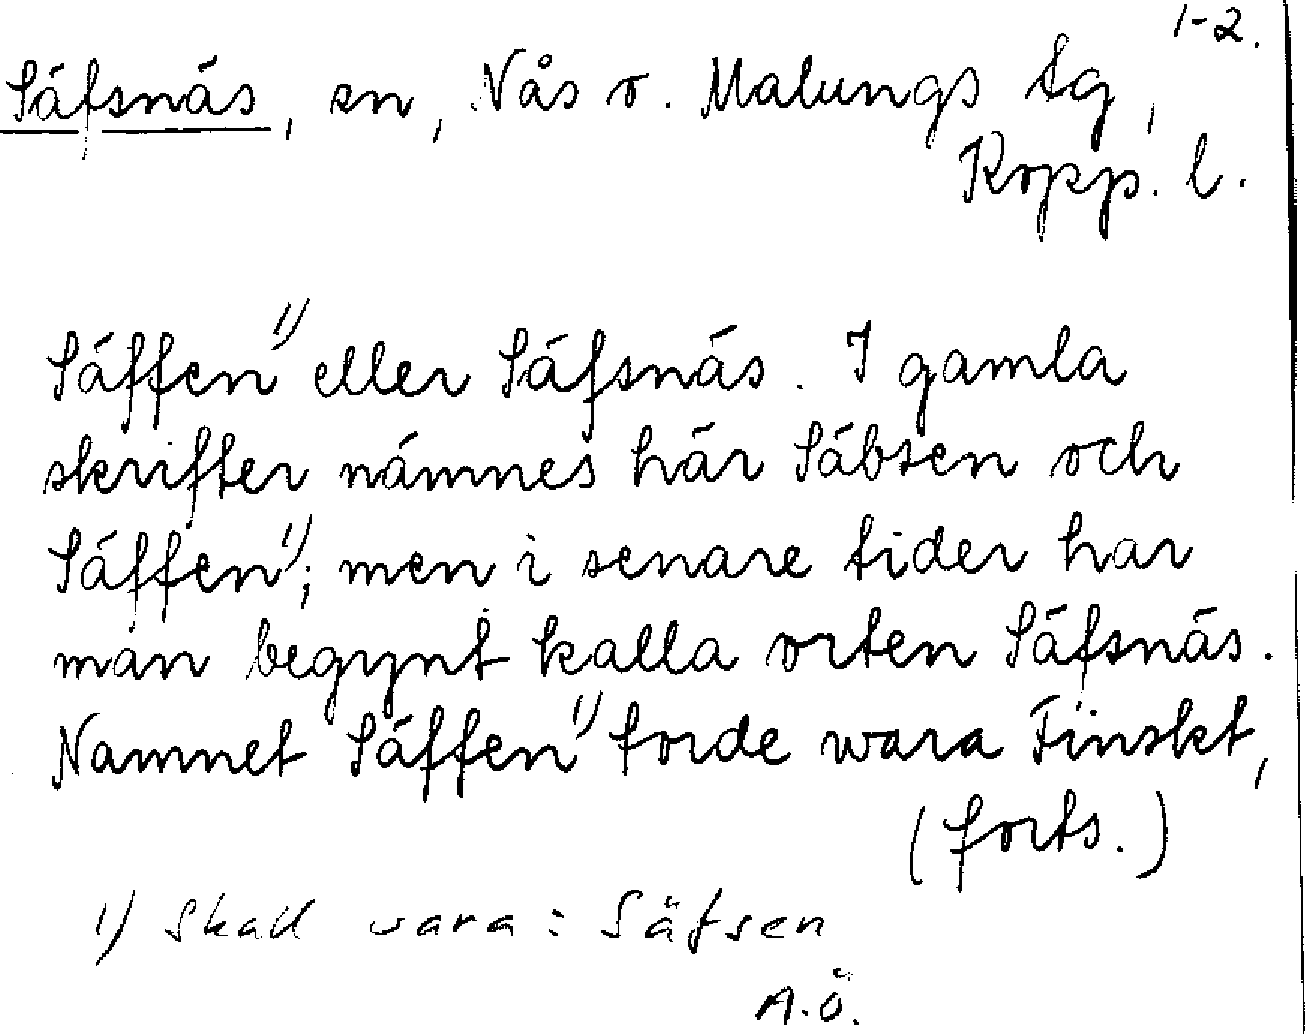 1-2.
Säfsnäs, sn, Nås o. Malungs tg,
Kopp. l.
Säffen 1) eller Säfsnäs. I gamla
skrifter nämnes här Säbsen och
Säffen 1); men i senare tider har
man begynt kalla orten Säfsnäs.
Namnet Säffen 1) torde wara Finskt,
(forts.)
1) Skall vara: Säfsen
A.Ö.